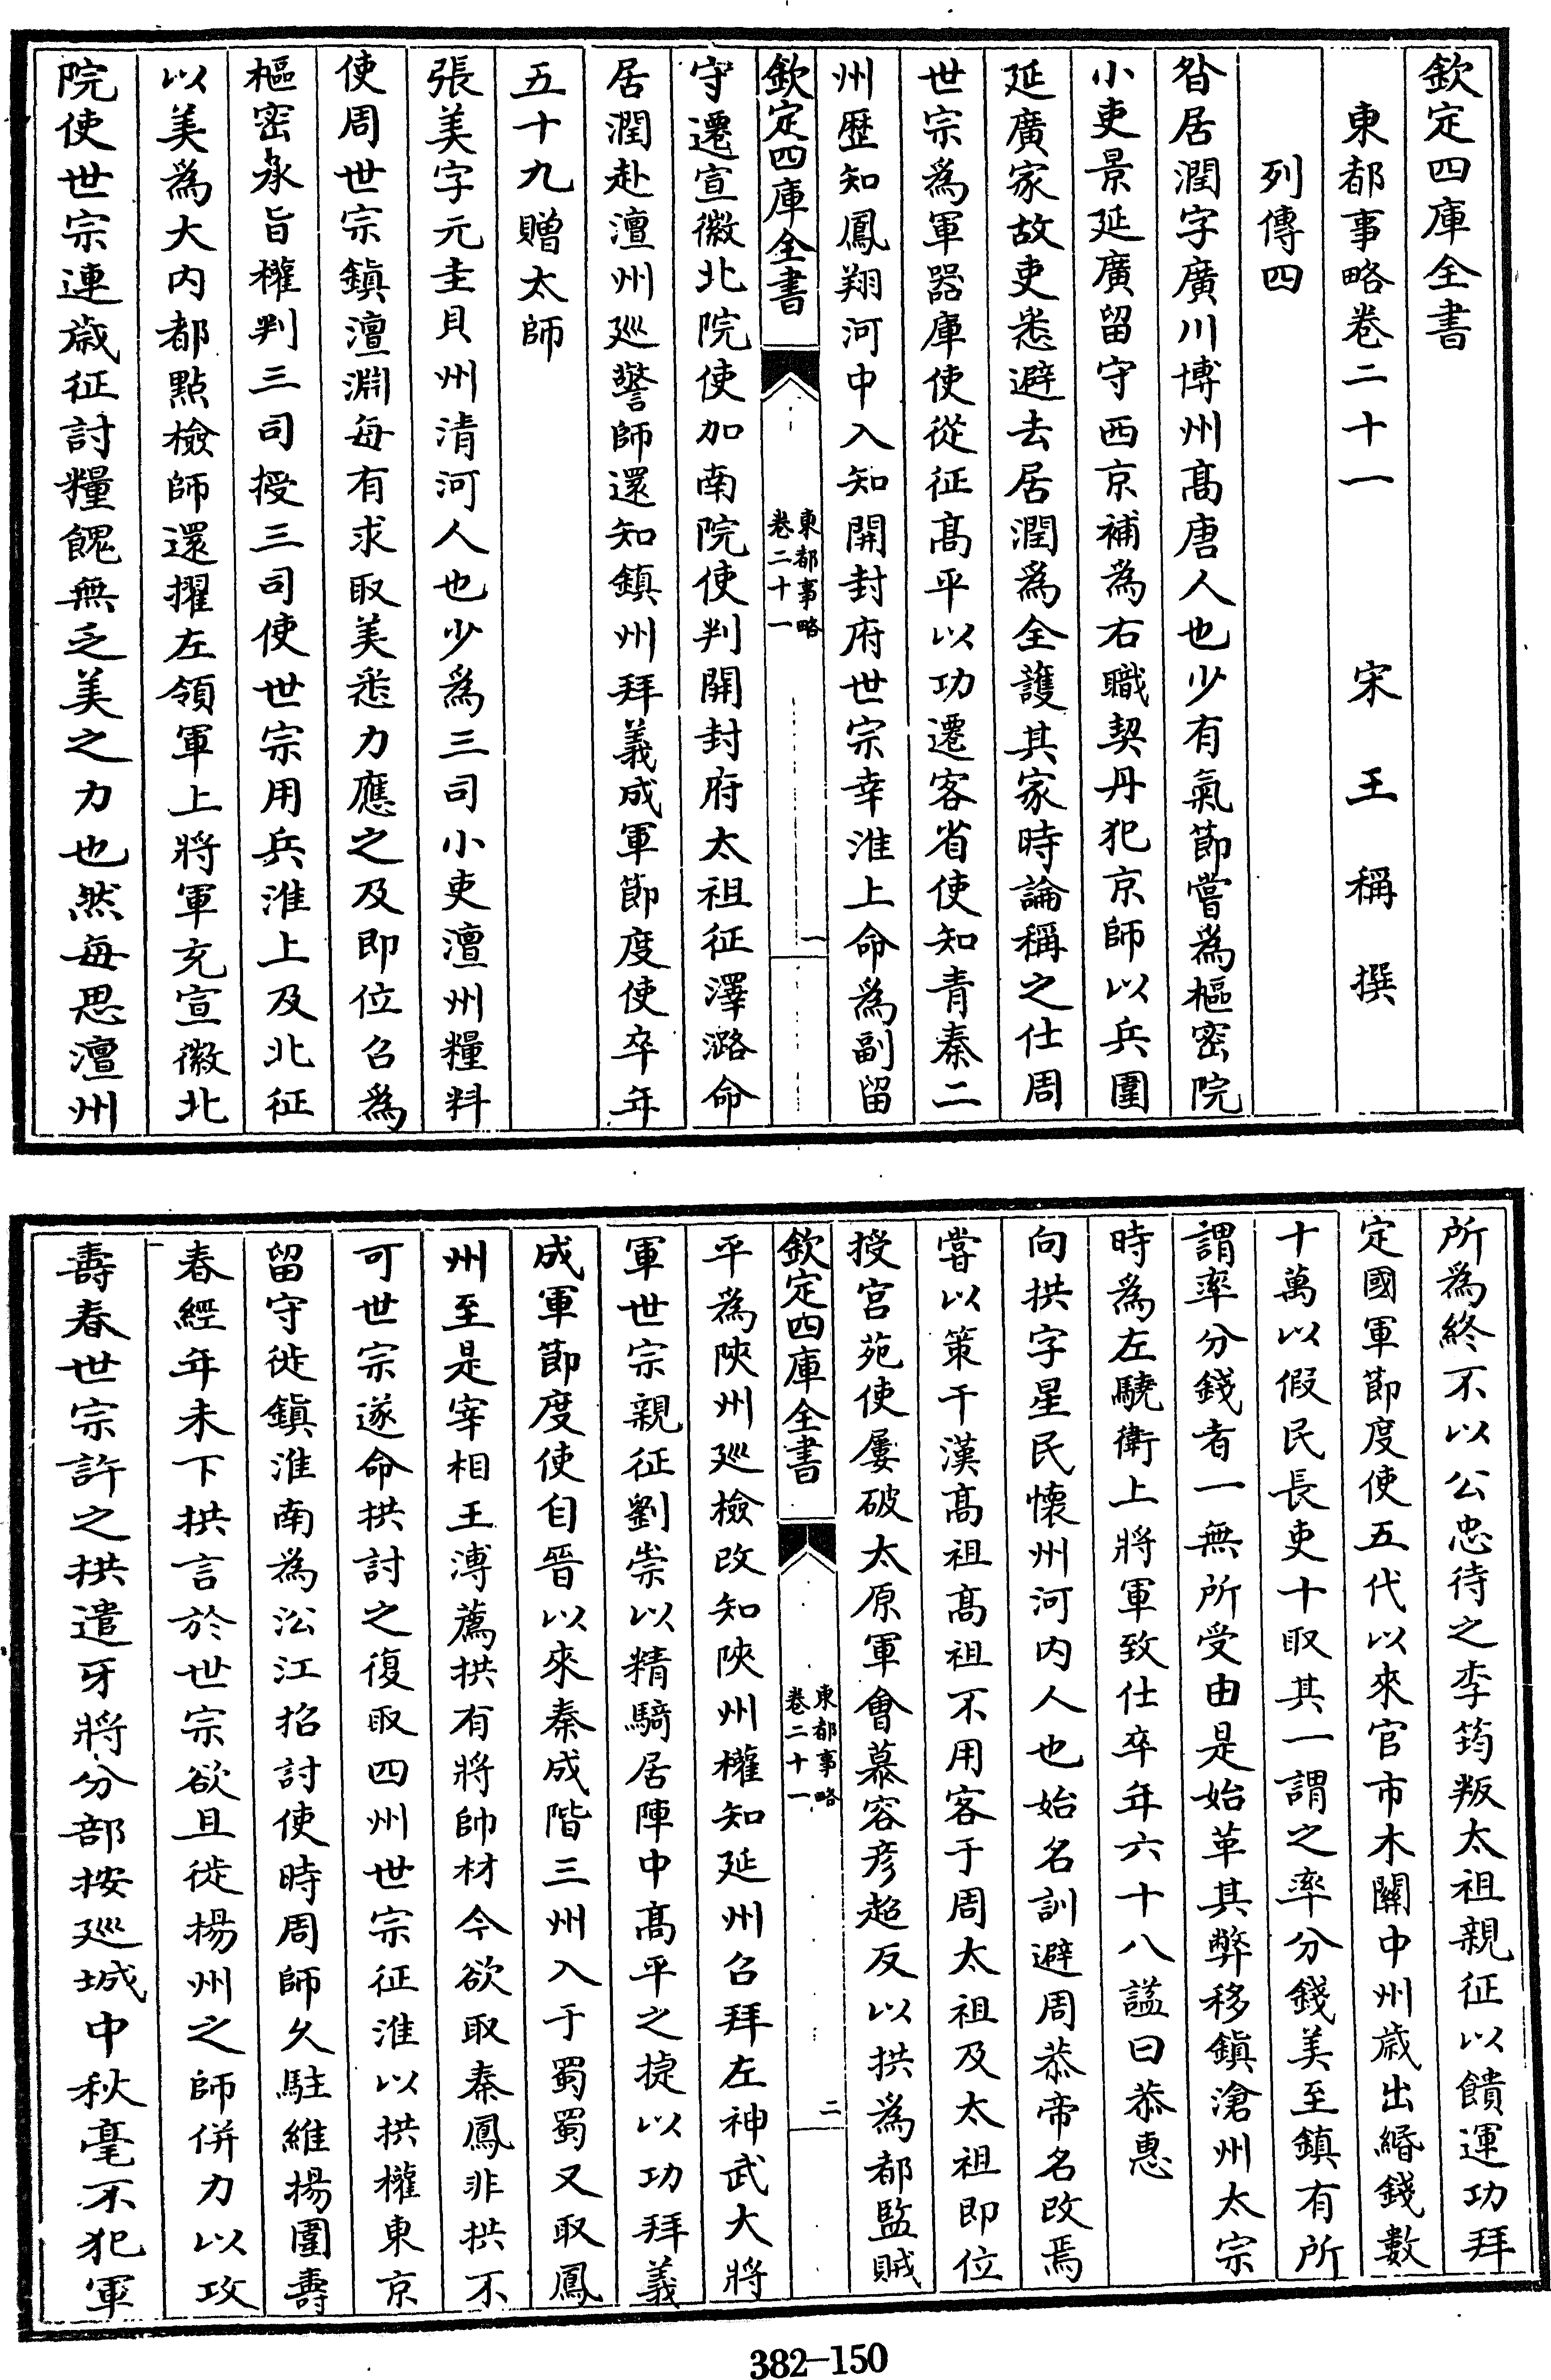 欽定四庫全書
東都事略卷二十一　宋　王　稱　撰
列傳四
昝居潤字廣川博州髙唐人也少有氣節嘗爲樞密院
小吏景延廣留守西京補為右職契丹犯京師以兵圍
延廣家故吏悉避去居潤為全護其家時論稱之仕周
世宗為軍器庫使從征髙平以功遷客省使知青秦二
州歴知鳳翔河中入知開封府世宗幸淮上命為副留
欽定四庫全書
東都事略
卷二十一
一
守遷宣微北院使加南院使判開封府太祖征澤潞命
居潤赴澶州巡警師還知鎮州拜義成軍節度使卒年
五十九贈太師
張美字元圭貝州清河人也少爲三司小吏澶州糧料
使周世宗鎮澶淵每有求取美悉力應之及即位召為
樞密承旨權判三司授三司使世宗用兵淮上及北征
以美爲大内都點檢師還擢左領軍上將軍充宣徽北
院使世宗連歳征討糧餽無乏美之力也然每思澶州
所為終不以公忠待之李筠叛太祖親征以饋運功拜
定國軍節度使五代以來官市木關中州歳出緡錢數
十萬以假民長吏十取其一謂之率分錢美至鎮有所
謂率分錢者一無所受由是始革其弊移鎮滄州太宗
時為左驍衛上將軍致仕卒年六十八諡曰恭惠
向拱字星民懷州河内人也始名訓避周恭帝名改焉
嘗以策干漢髙祖髙祖不用客于周太祖及太祖即位
授宫苑使屢破太原軍會慕容彦超反以拱為都監賊
欽定四庫全書
東都事略
卷二十一
二
平為陜州巡檢改知陜州權知延州召拜左神武大將
軍世宗親征劉崇以精騎居陣中髙平之捷以功拜義
成軍節度使自晉以來秦成階三州入于蜀蜀又取鳳
州至是宰相王溥薦拱有將帥材今欲取秦鳳非拱不
可世宗遂命拱討之復取四州世宗征淮以拱權東京
留守徙鎮淮南為㳂江招討使時周師久駐維揚圍壽
春經年未下拱言於世宗欲且徙揚州之師併力以攻
壽春世宗許之拱遣牙將分部按巡城中秋毫不犯軍
382-150